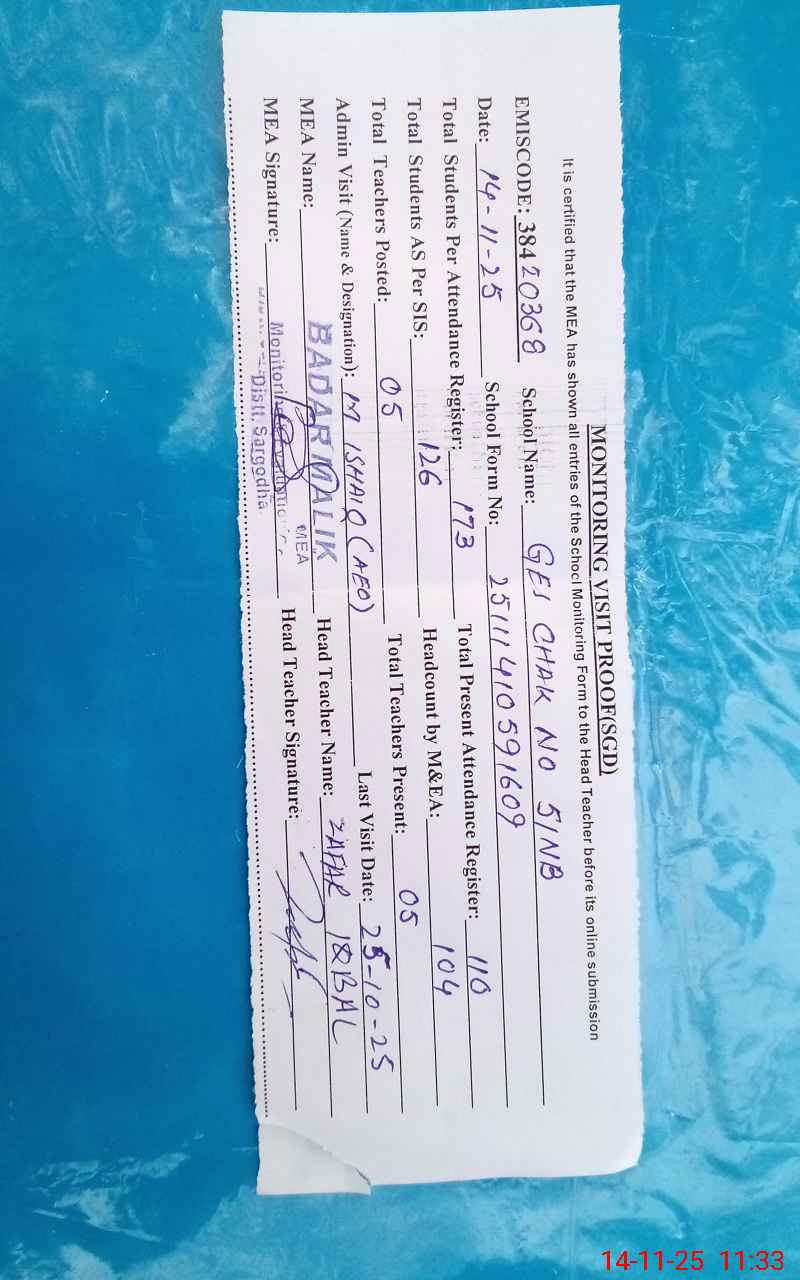 MONITORING VISIT PROOF(SGD)
It is certified that the MEA has shown all entries of the School Monitoring Form to the Head Teacher before its online submission
EMISCODE: 38420368 School Name: GES CHAK NO 51NB
Date: 14-11-25 School Form No: 251114105 91609
Total Students Per Attendance Register: 173 Total Present Attendance Register: 110
Total Students AS Per SIS: 126 Headcount by M&EA: 104
Total Teachers Posted: 05 Total Teachers Present: 05
Admin Visit (Name & Designation): M ISHAIQ (AEO) Last Visit Date: 25-10-25
MEA Name: BADAR MALIK Head Teacher Name: ZAFAR IQBAL
MEA
MEA Signature: Head Teacher Signature:
Monitoring
Distt. Sargodha
14-11-25 11:33